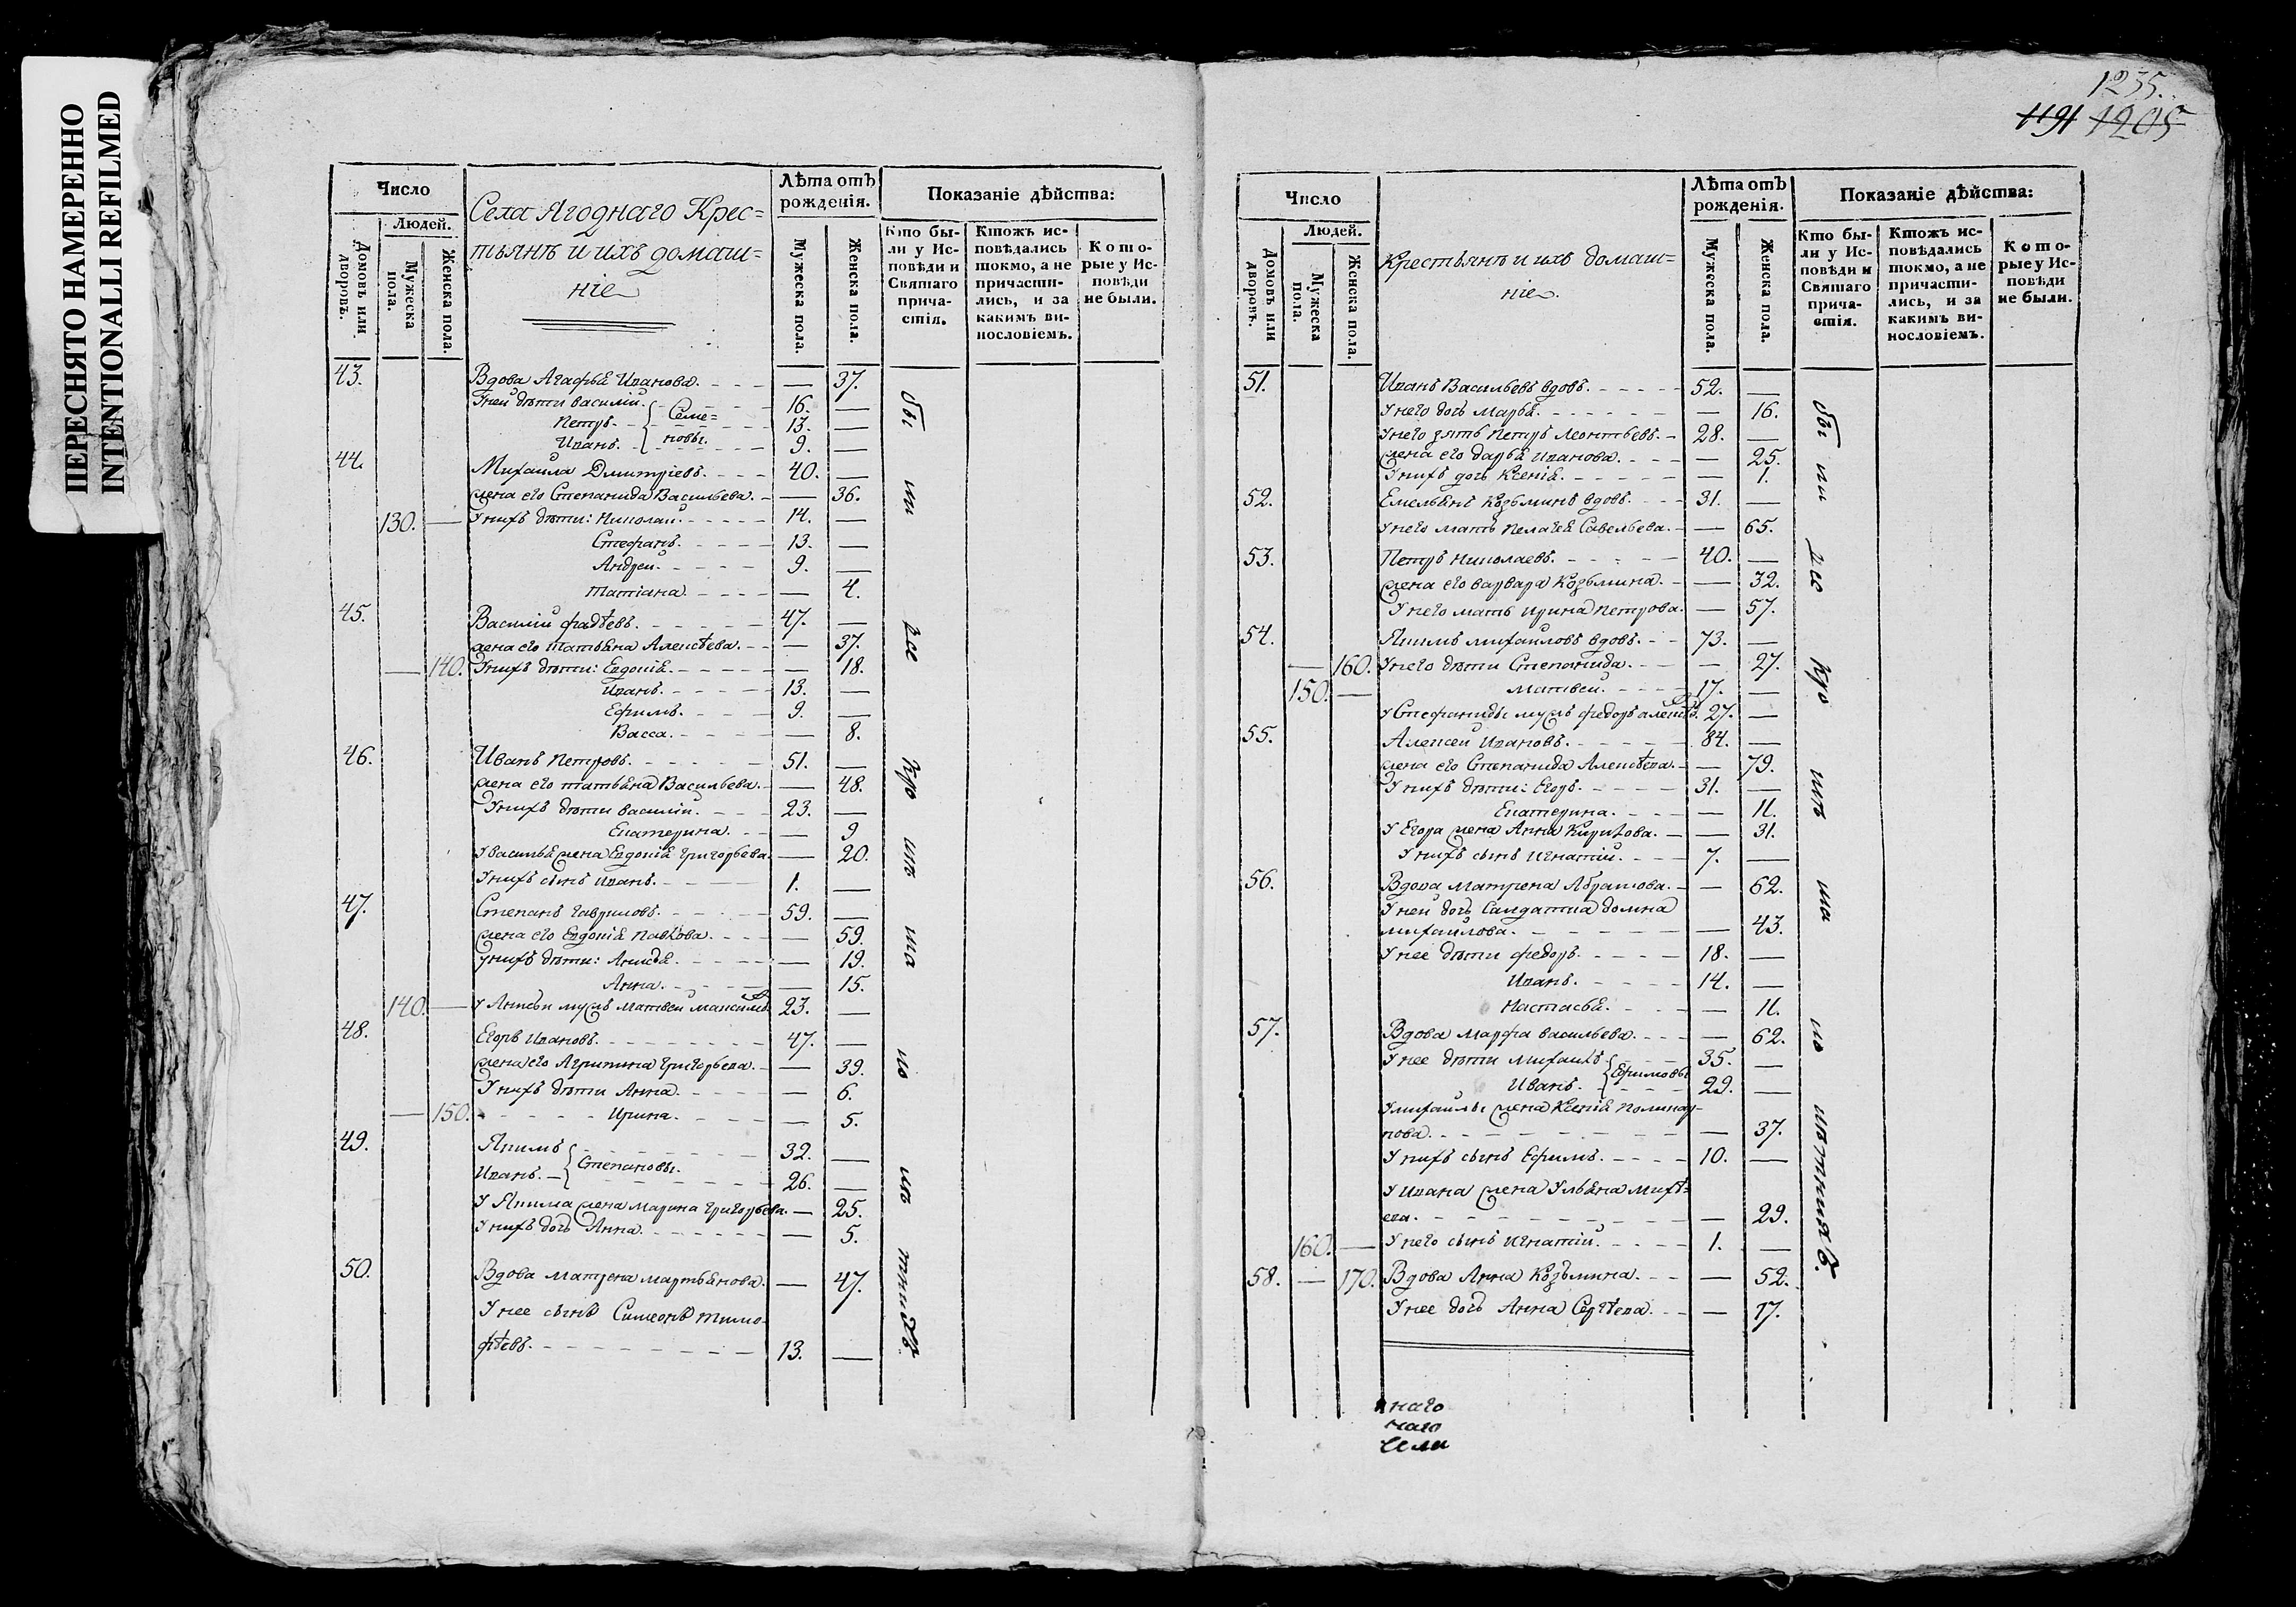 ПЕРЕСНЯТО НАМЕРЕННО
INTENTIONALLI REFILMED
1255.
1191 1205
Число
Людей.
Домовъ или дворовъ.
Мужеска пола.
Женска пола.
Села Ягоднаго Крес=
тьянъ и ихъ домаш=
ніе
Лѣта отъ рожденія.
Мужеска пола.
Женска пола.
Показаніе дѣйства:
Кто бы-
ли у Ис-
повѣди и
Святаго
прича-
стія.
Ктожъ ис-
повѣдались
токмо, а не
причасти-
лись, и за
какимъ ви-
нословіемъ.
Кото-
рые у Ис-
повѣди
не были.
43. Вдова Агафья Иванова. — 37.
У ней дѣти Василій. 16. —
Петръ. Семе= 13. —
Иванъ. новы. 9. —
44. Михайла Дмитріевъ. 40. —
жена его Степанида Васильева. — 36.
130. — У нихъ дѣти: Николай. 14. —
Стефанъ. 13. —
Андрей. 9. —
Татіана. — 4.
45. Василій Фадѣевъ. 47. —
жена его Татьяна Алексѣева. — 37.
— 140. У нихъ дѣти: Евдокія. — 18.
Иванъ. 13. —
Ефимъ. 9. —
Васса. — 8.
46. Иванъ Петровъ. 51. —
жена его Татьяна Васильева. — 48.
У нихъ дѣти Василій. 23. —
Екатерина. — 9
У Василья жена Евдокія Григорьева. — 20.
У нихъ сынъ Иванъ. 1. —
47. Степанъ Гавриловъ. 59. —
жена его Евдокія Павлова. — 59.
У нихъ дѣти: — 19.
Анна. — 15.
140. — мужъ Матвей 23. —
48. Егоръ Ивановъ. 47. —
жена его Агрипина Григорьева. — 39.
У нихъ дѣти Анна. — 6.
— 150. Ирина. — 5.
49. Якимъ 32. —
Иванъ. — Степановы. 26. —
У Якима жена Марина Григорьева. — 25.
У нихъ дочь Анна. — 5.
50. Вдова Матрена Мартьянова. — 47.
У нее сынъ Симеонъ Тимо-
фѣевъ. 13. —
Число
Людей.
Домовъ или дворовъ.
Мужеска пола.
Женска пола.
Крестьянъ и ихъ домаш=
ніе.
Лѣта отъ рожденія.
Мужеска пола.
Женска пола.
Показаніе дѣйства:
Кто бы-
ли у Ис-
повѣди и
Святаго
прича-
стія.
Ктожъ ис-
повѣдались
токмо, а не
причасти-
лись, и за
какимъ ви-
нословіемъ.
Кото-
рые у Ис-
повѣди
не были.
51. Иванъ Васильевъ вдовъ. 52. —
У него дочь Марья. — 16.
У него зять Петръ Леонтьевъ. 28. —
жена его Дарья Иванова. — 25.
У нихъ дочь Ксенія. — 1.
52. Емельянъ Козьминъ вдовъ. 31. —
У него мать Пелагея Савельева. — 65.
53. Петръ Николаевъ. 40. —
жена его Варвара Козьмина. — 32.
У него мать Ирина Петрова. — 57.
54. Якимъ Михайловъ вдовъ. 73. —
— 160. У него дѣти Степанида. — 27.
150. — Матвей. 17. —
У Стефаниды мужъ Федоръ 27. —
55. Алексей Ивановъ. 84. —
жена его Степанида Алексѣева. — 79.
У нихъ дѣти: Егоръ. 31. —
Екатерина. — 11.
У Егора жена Анна Кирилова. — 31.
У нихъ сынъ Игнатій. 7. —
56. Вдова Матрена Абрамова. — 62.
У ней дочь Салдатка Домна
Михайлова. — 43.
У нее дѣти Федоръ. 18. —
Иванъ. 14. —
Настасья. — 11.
57. Вдова Марфа Васильева. — 62.
У нее дѣти Михайла 35. —
Иванъ. Ефимовы 29. —
У Михайлы жена Ксенія Поликар-
пова. — 37.
У нихъ сынъ Ефимъ. 10. —
У Ивана жена Ульяна Михѣ=
ева. — 29.
160. — У него сынъ Игнатій. 1. —
58. — 170. Вдова Анна Козьмина. — 52.
У нее дочь Анна Сергѣева. — 17.